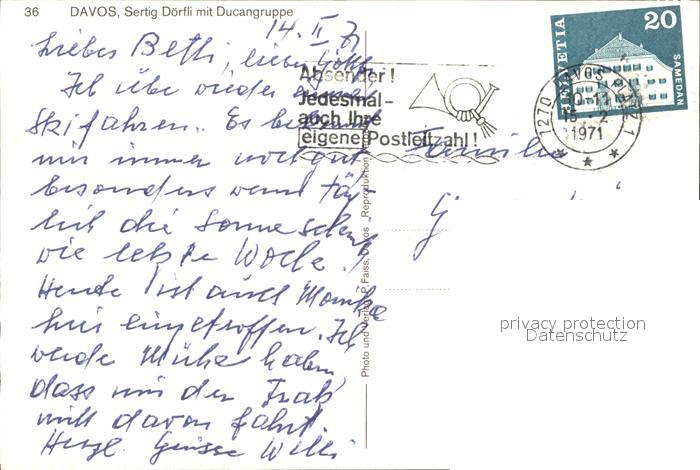 36 DAVOS, Sertig Dörfli mit Ducangruppe
14. II 71
Liebes Betli, lieber
Ich übe wieder
Skifahren. Es
mir immer noch gut
besonders wenn täg-
lich die Sonne scheint
wie letzte Woche.
Heute ist auch Monika
hier eingetroffen. Ich
werde Mühe haben
dass mir der Frak
nicht davon fährt.
Herzl. Grüsse Willi
Absender!
Jedesmal–
auch Ihre
eigene Postleitzahl!
HELVETIA
20
SAMEDAN
1270 DAVOS PLATZ 1
15.-2.
1971
Familie
G
Photo und Verlag P. Faiss, Davos
privacy protection
Datenschutz